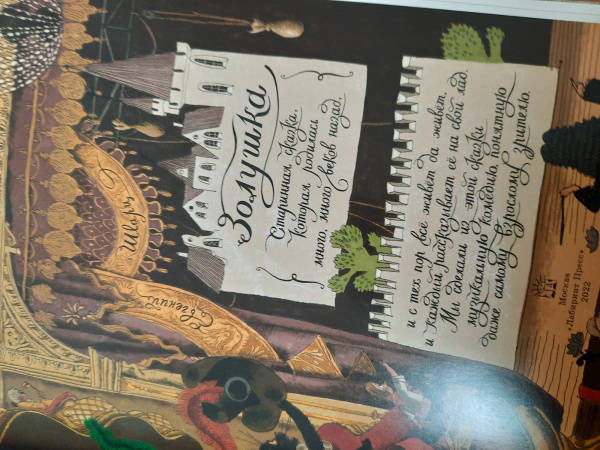 Евгений Шварц
Золушка
Старинная сказка,
Которая родилась
много, много веков назад,
и с тех пор всё живёт да живёт,
и каждый рассказывает её на свой лад.
Мы сделали из этой сказки
музыкальную комедию, понятную
даже самому взрослому зрителю.
Москва
«Лабиринт Пресс»
2022